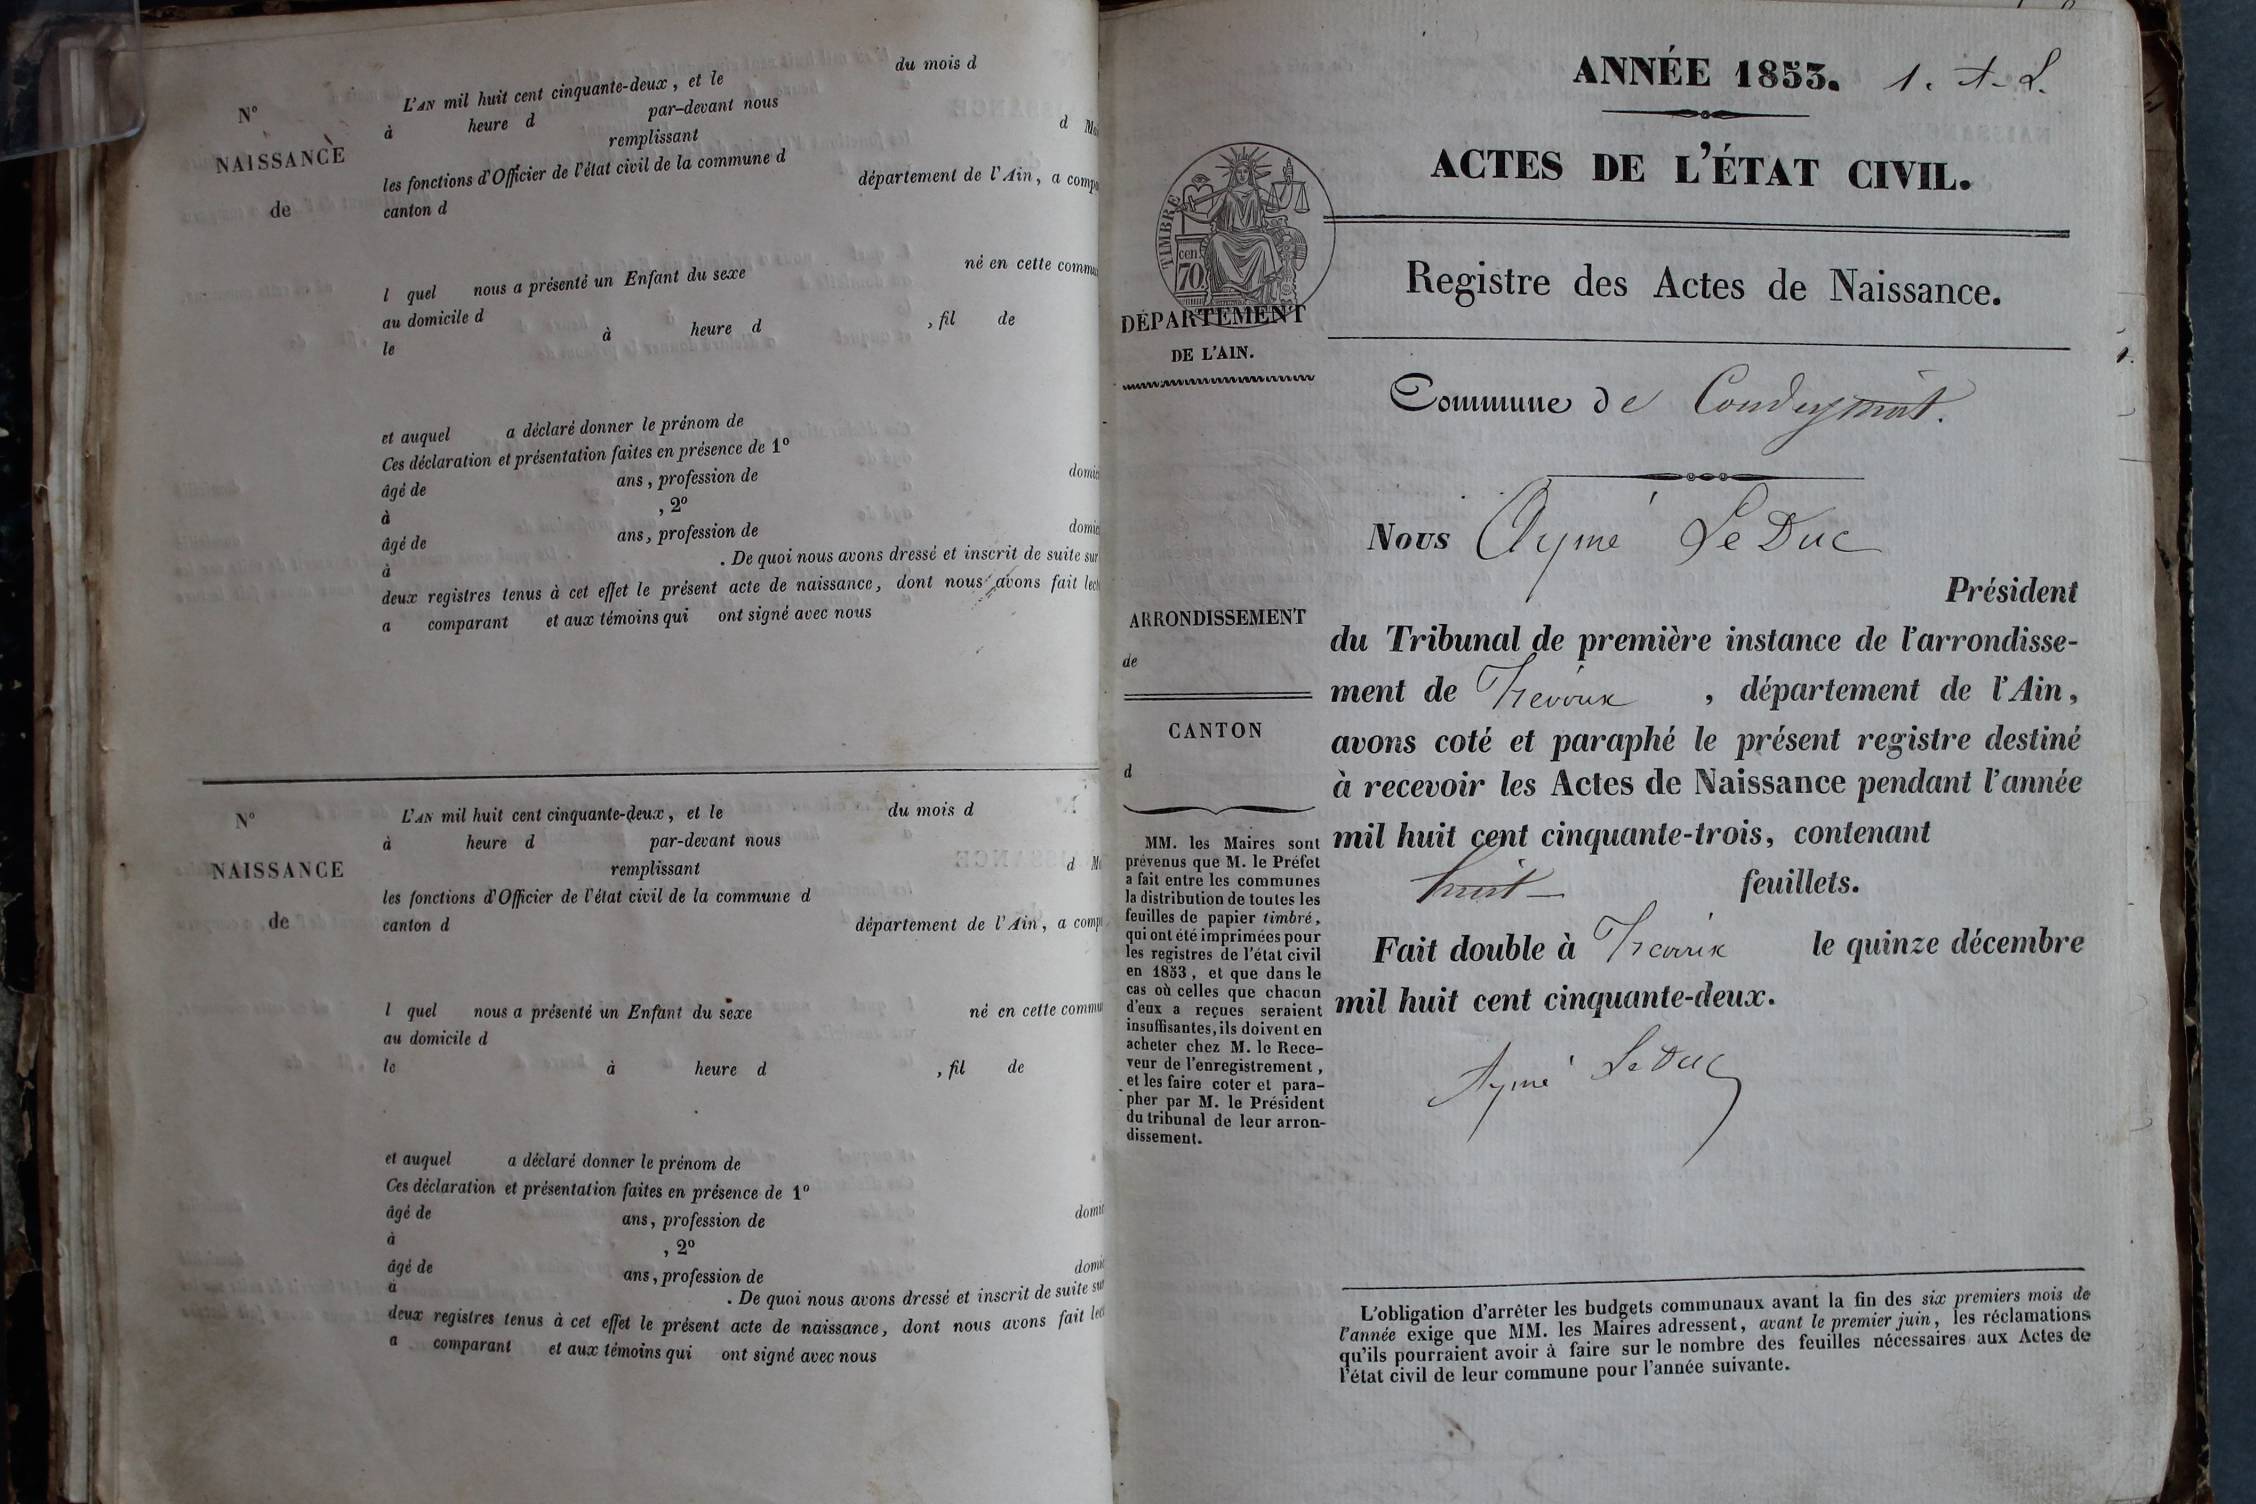 N°
NAISSANCE
de
L'AN mil huit cent cinquante-deux, et le du mois d
à heure d par-devant nous
remplissant d
les fonctions d'Officier de l'état civil de la commune d
canton d département de l'Ain, a
l quel nous a présenté un Enfant du sexe né en cette
au domicile d
le à heure d , fil de
et auquel a déclaré donner le prénom de
Ces déclaration et présentation faites en présence de 1°
âgé de ans, profession de
à , 2°
âgé de ans, profession de
à . De quoi nous avons dressé et inscrit de suite sur
deux registres tenus à cet effet le présent acte de naissance, dont nous avons fait
a comparant et aux témoins qui ont signé avec nous
N°
NAISSANCE
de
L'AN mil huit cent cinquante-deux, et le du mois d
à heure d par-devant nous
remplissant d
les fonctions d'Officier de l'état civil de la commune d
canton d département de l'Ain, a
l quel nous a présenté un Enfant du sexe né en cette
au domicile d
le à heure d , fil de
et auquel a déclaré donner le prénom de
Ces déclaration et présentation faites en présence de 1°
âgé de ans, profession de
à , 2°
âgé de ans, profession de
à . De quoi nous avons dressé et inscrit de suite sur
deux registres tenus à cet effet le présent acte de naissance, dont nous avons fait
a comparant et aux témoins qui ont signé avec nous
ANNÉE 1853. 1.
ACTES DE L'ÉTAT CIVIL.
TIMBRE
cen.
70
Registre des Actes de Naissance.
DÉPARTEMENT
DE L'AIN.
Commune de
Nous Aymé LeDuc
Président
du Tribunal de première instance de l'arrondisse-
ment de Trévoux , département de l'Ain,
avons coté et paraphé le présent registre destiné
à recevoir les Actes de Naissance pendant l'année
mil huit cent cinquante-trois, contenant
huit feuillets.
Fait double à Trévoux le quinze décembre
mil huit cent cinquante-deux.
Aymé LeDuc
ARRONDISSEMENT
de
CANTON
d
MM. les Maires sont
prévenus que M. le Préfet
a fait entre les communes
la distribution de toutes les
feuilles de papier timbré,
qui ont été imprimées pour
les registres de l'état civil
en 1853, et que dans le
cas où celles que chacun
d'eux a reçues seraient
insuffisantes, ils doivent en
acheter chez M. le Rece-
veur de l'enregistrement,
et les faire coter et para-
pher par M. le Président
du tribunal de leur arron-
dissement.
L'obligation d'arrêter les budgets communaux avant la fin des six premiers mois de
l'année exige que MM. les Maires adressent, avant le premier juin, les réclamations
qu'ils pourraient avoir à faire sur le nombre des feuilles nécessaires aux Actes de
l'état civil de leur commune pour l'année suivante.